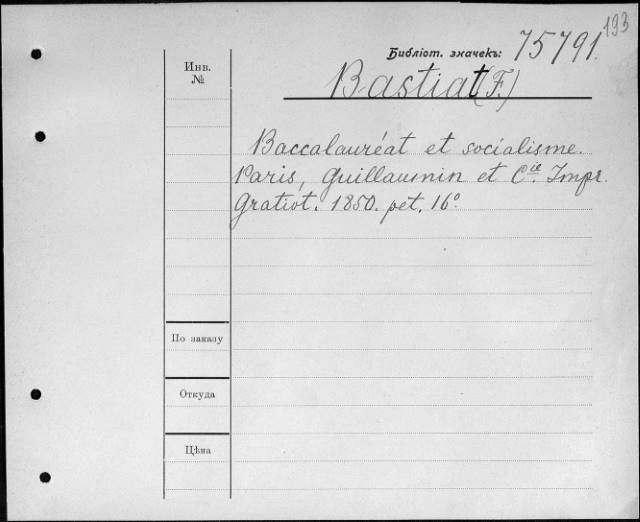 193
Библіот. значекъ: 75791.
Инв.
№
Bastiat (F.)
Baccalauréat et socialisme.
Paris, Guillaumin et Cie. Impr.
Gratiot. 1850. pet. 16º
По заказу
Откуда
Цѣна